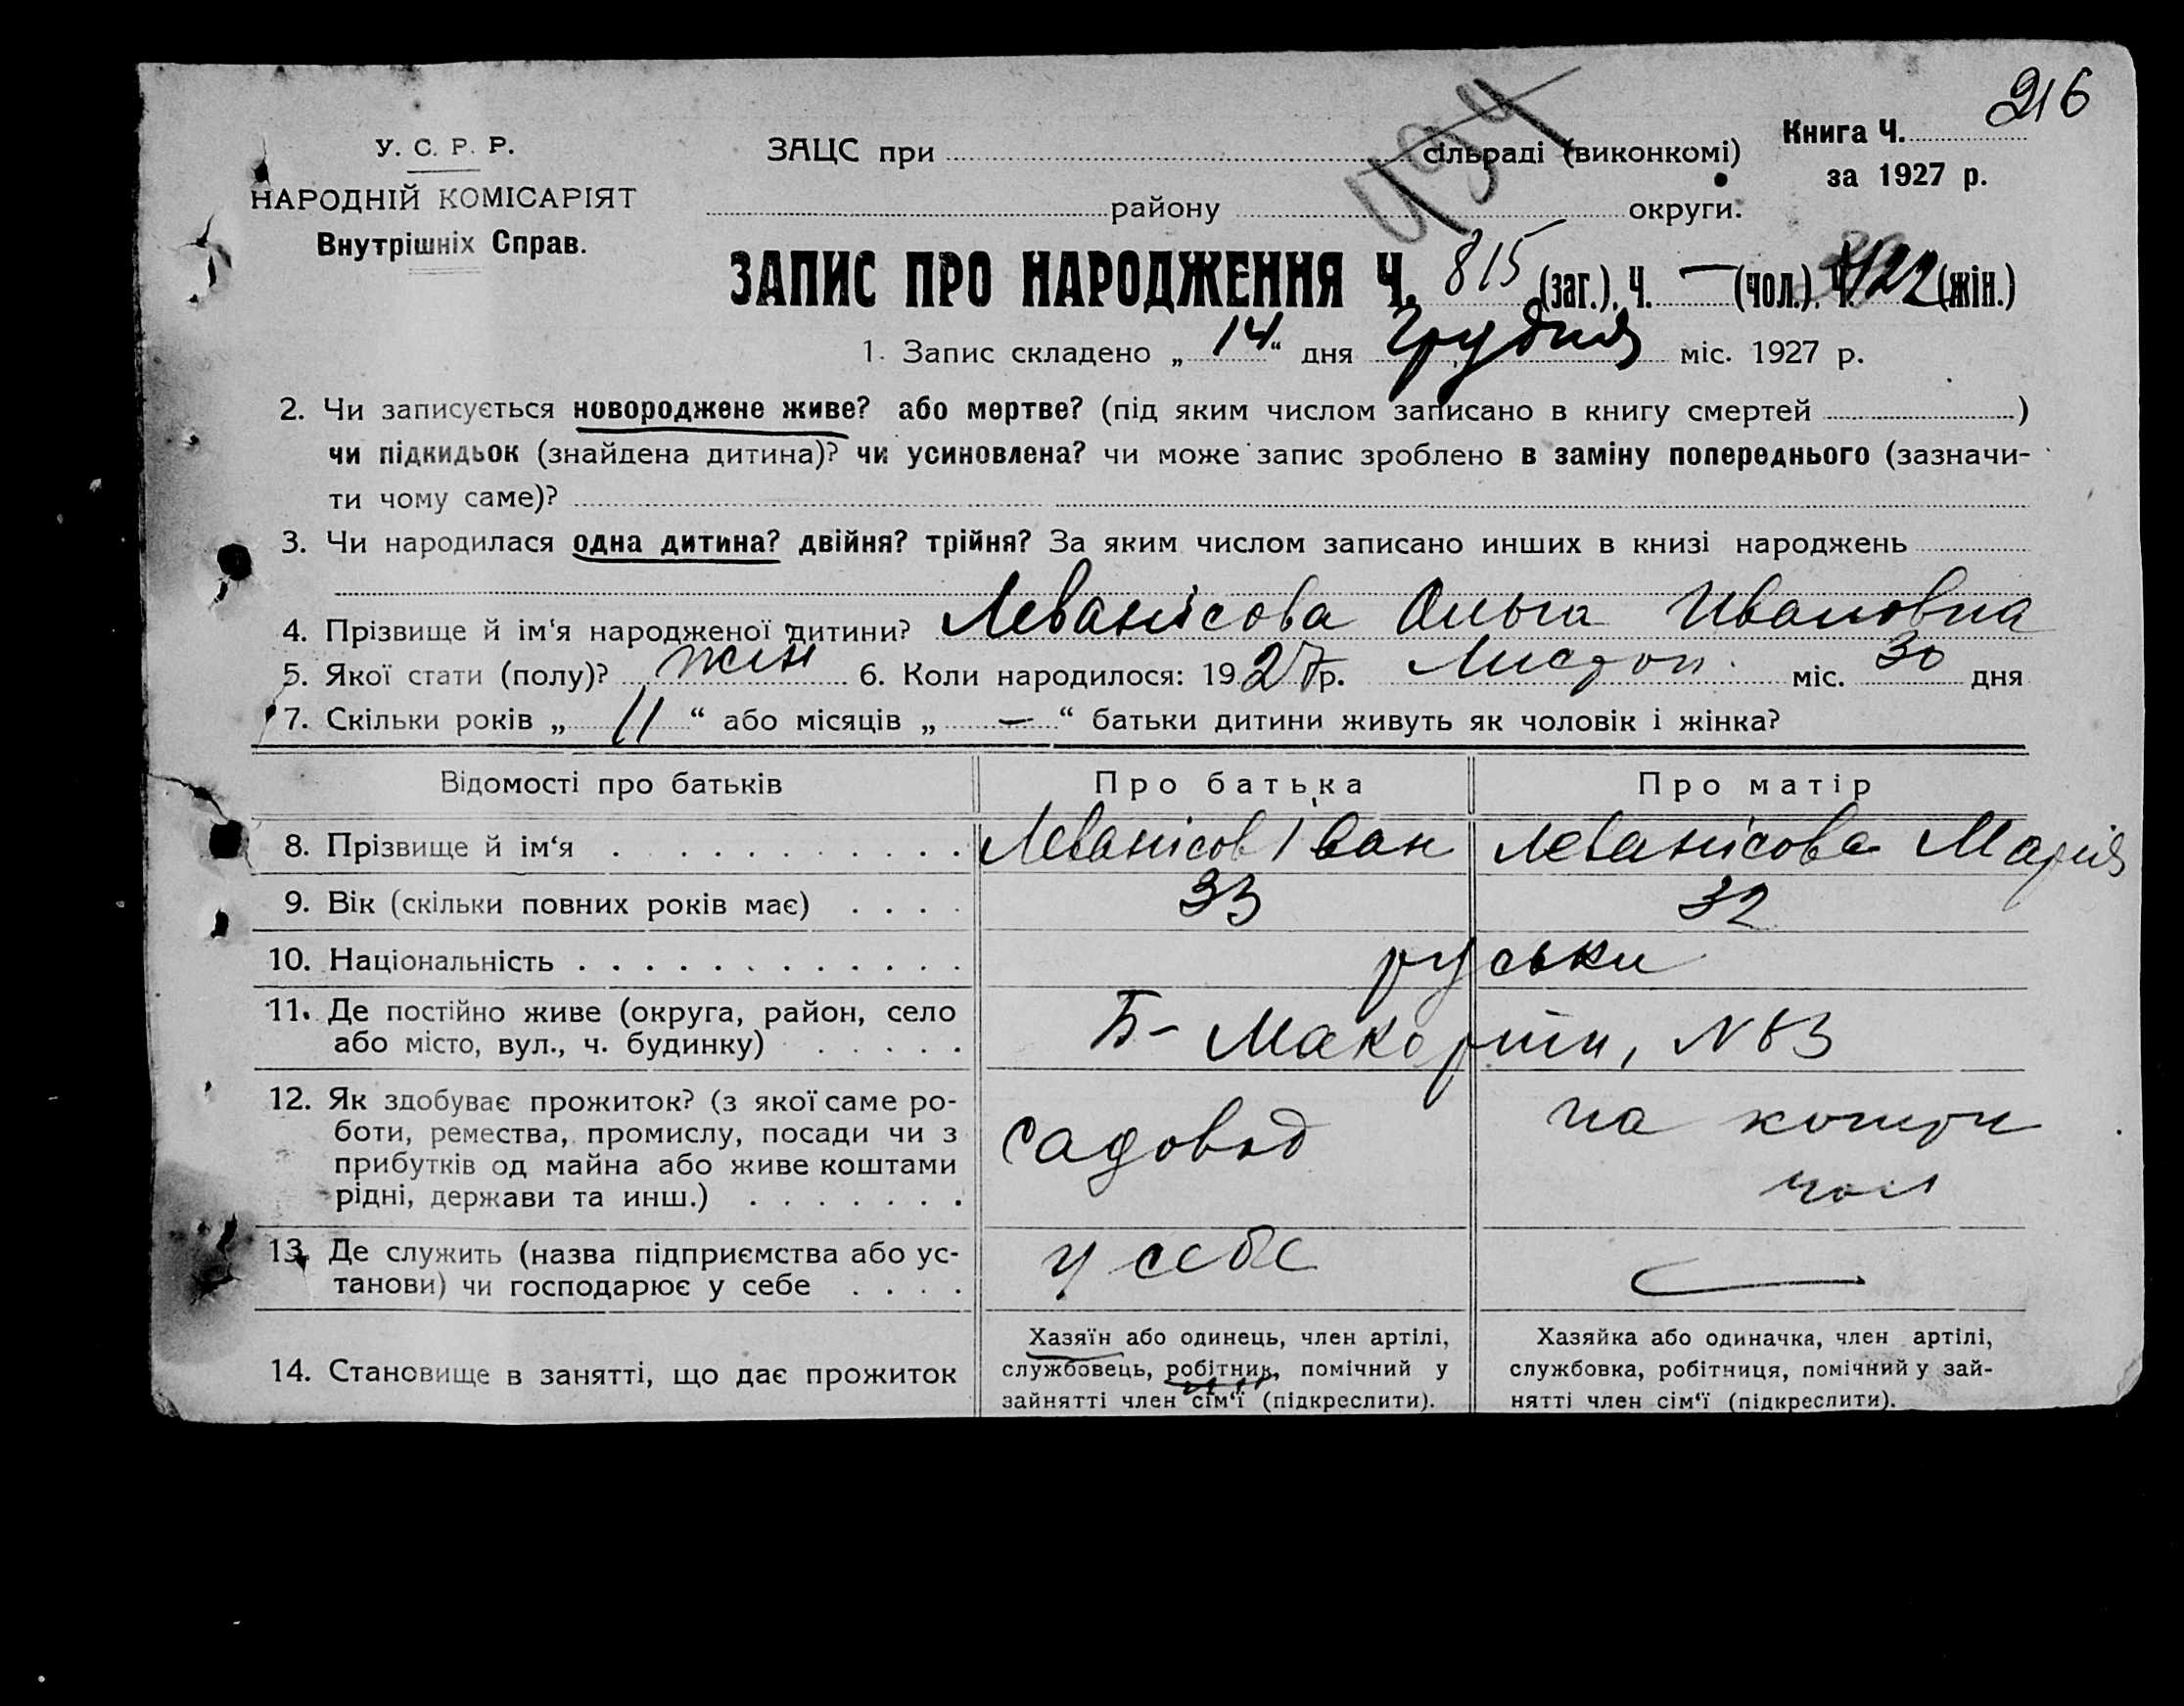 216
У. С. Р. Р.
НАРОДНІЙ КОМІСАРІЯТ
Внутрішніх Справ.
ЗАЦС при сільраді (виконкомі)
району округи.
Книга Ч.
за 1927 р.
ЗАПИС ПРО НАРОДЖЕННЯ Ч. 815 (заг.), Ч. — (чол.), Ч. 422 (жін.)
1. Запис складено „ 14 “ дня Грудня міс. 1927 р.
2. Чи записується новороджене живе? або мертве? (під яким числом записано в книгу смертей )
чи підкидьок (знайдена дитина)? чи усиновлена? чи може запис зроблено в заміну попереднього (зазначи-
ти чому саме)?
3. Чи народилася одна дитина? двійня? трійня? За яким числом записано инших в книзі народжень
4. Прізвище й ім'я народженої дитини? Леванісова Ольга Ивановна
5. Якої стати (полу)? жін 6. Коли народилося: 1927р. Листоп. міс. 30 дня
7. Скільки років „ 11 “ або місяців „ — “ батьки дитини живуть як чоловік і жінка?
Відомості про батьків Про батька Про матір
8. Прізвище й ім‘я Леванісов Іван Леванісова Марія
9. Вік (скільки повних років має) 33 32
10. Національність руськи
11. Де постійно живе (округа, район, село
або місто, вул., ч. будинку)
Б- Макорти, №83
12. Як здобуває прожиток? (з якої саме ро-
боти, ремества, промислу, посади чи з
прибутків од майна або живе коштами
рідні, держави та инш.)
садовод
на кошти
чол
13. Де служить (назва підприємства або ус-
танови) чи господарює у себе
у себе —
14. Становище в занятті, що дає прожиток
Хазяїн або одинець, член артілі,
службовець, робітник, помічний у
зайнятті член сім‘ї (підкреслити).
Хазяйка або одиначка, член артілі,
службовка, робітниця, помічний у зай-
нятті член сім‘ї (підкреслити).